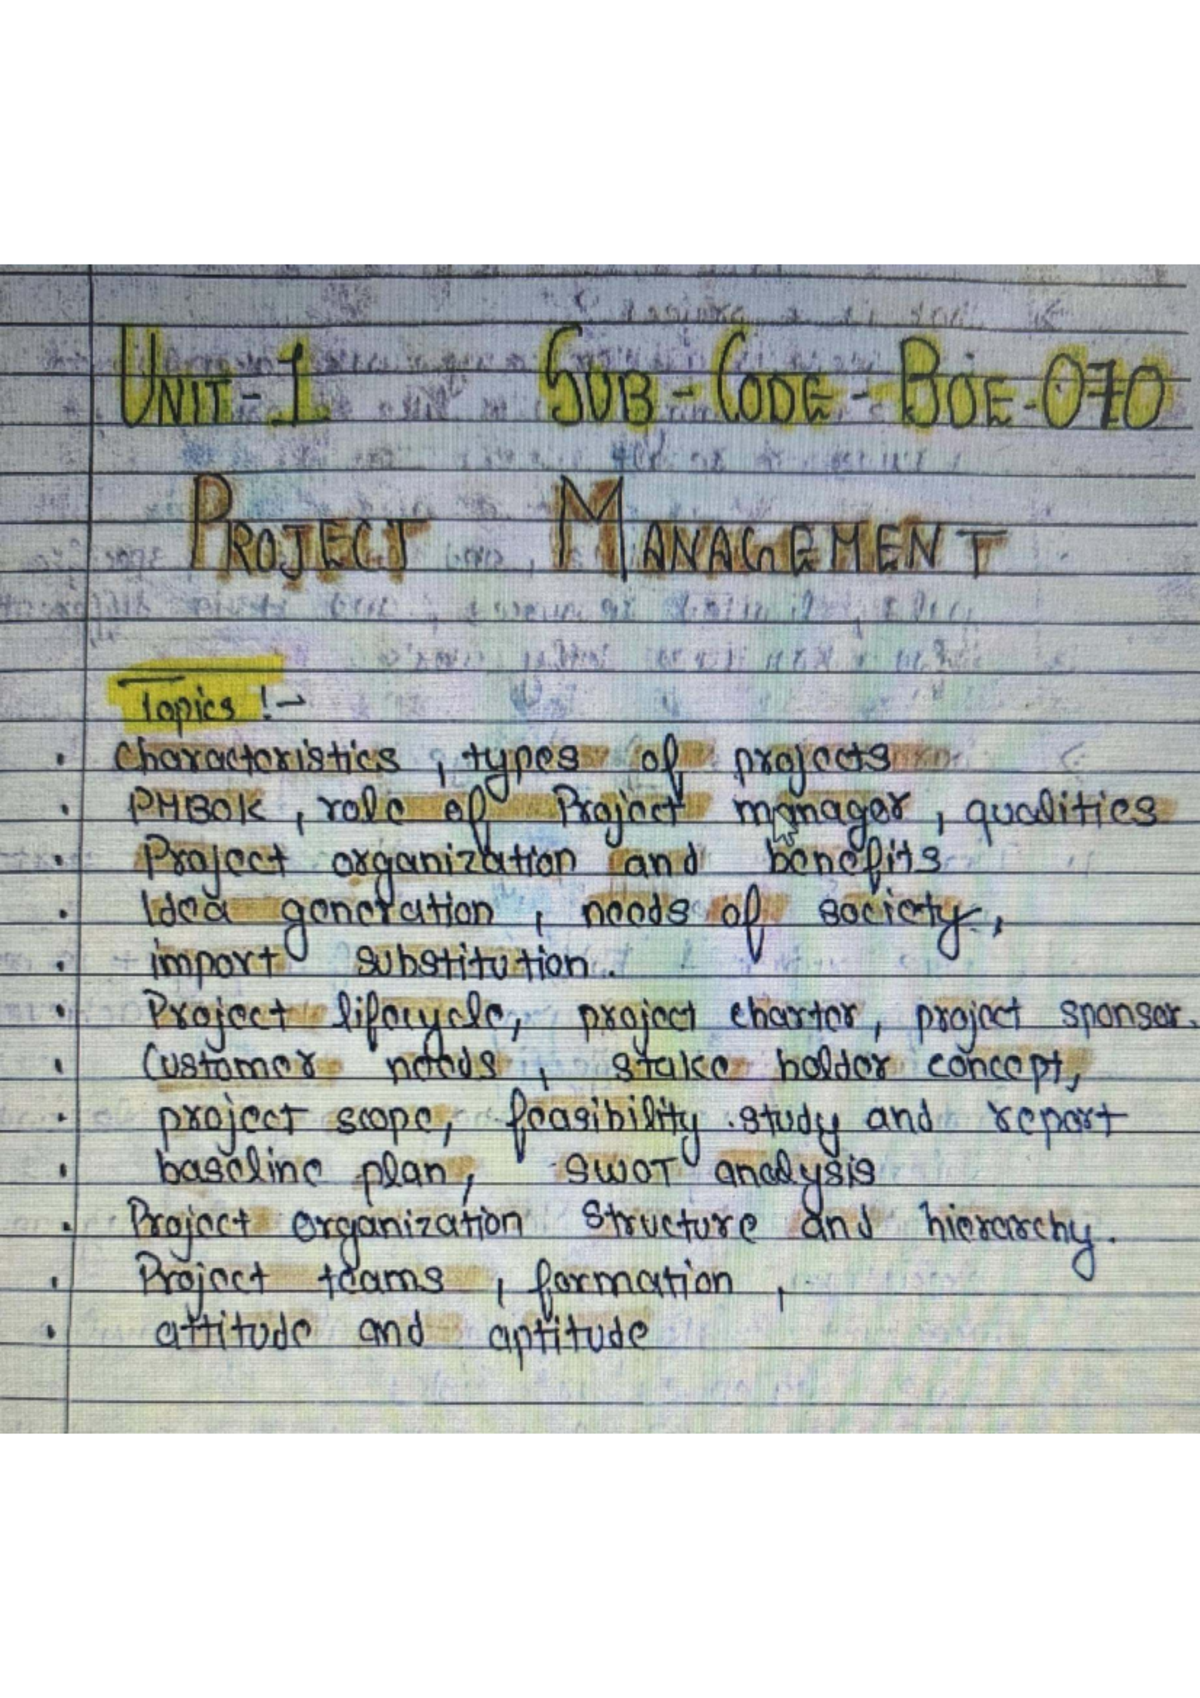 UNIT-1 SUB-CODE-BOE-070
PROJECT MANAGEMENT
Topics :-
• Characteristics, types of projects
• PMBOK, role of Project manager, qualities
• Project organization and benefits
• Idea generation, needs of society,
• import substitution.
• Project lifecycle, project charter, project sponsor.
• Customer needs, stake holder concept,
• project scope, feasibility study and report
• baseline plan, SWOT analysis
• Project organization structure and hierarchy.
• Project teams, formation,
• attitude and aptitude